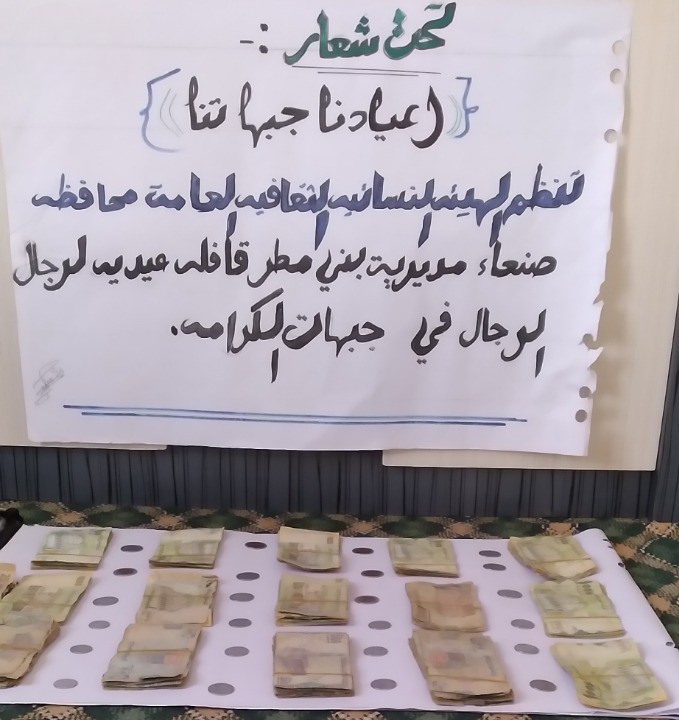 تحت شعار :-
{(اعيادنا جبهاتنا)}
تنظم الهيئه النسائيه الثقافيه العامة محافظه
صنعاء مديرية بني مطر قافله عيديه لرجال
الرجال في جبهات الكرامه.